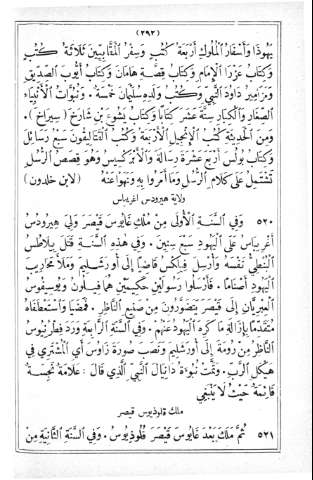 (٢٩٢)
يَهُوذَا وَأَسْفَارُ ٱلْمُلُوكِ أَرْبَعَةُ كُتُبٍ وَسِفْرُ ٱلْمَقَّابِيِّينَ ثَلَاثَةُ كُتُبٍ
وَكِتَابُ عَزْرَا ٱلْإِمَامِ وَكِتَابُ قِصَّةِ هَامَانَ وَكِتَابُ أَيُّوبَ ٱلصِّدِّيقِ
وَمَزَامِيرُ دَاوُدَ ٱلنَّبِيِّ وَكُتُبُ وَلَدِهِ سُلَيْمَانَ خَمْسَةٌ. وَنُبُوَّاتُ ٱلْأَنْبِيَاءِ
ٱلصِّغَارِ وَٱلْكِبَارِ سِتَّةَ عَشَرَ كِتَابًا وَكِتَابُ يَشُوعَ بْنِ شَارِخَ (سِيرَاخَ).
وَمِنَ ٱلْحَدِيثَةِ كُتُبُ ٱلْإِنْجِيلِ ٱلْأَرْبَعَةُ وَكُتُبُ ٱلْقَتَالِيقُونَ سَبْعُ رَسَائِلَ
وَكِتَابُ بُولُسَ أَرْبَعَ عَشْرَةَ رِسَالَةً وَٱلْأَبْرَكْسِيسُ وَهُوَ قِصَصُ ٱلرُّسُلِ
تَشْتَمِلُ عَلَى كَلَامِ ٱلرُّسُلِ وَمَا أَمَرُوا بِهِ وَنَهَوْا عَنْهُ (لابن خلدون)
ولاية هيرودس اغريباس
٥٢٠ وَفِي ٱلسَّنَةِ ٱلْأُولَى مِنْ مُلْكِ غَايُوسَ قَيْصَرَ وَلِيَ هِيرُودُسُ
أَغْرِيبَاسُ عَلَى ٱلْيَهُودِ سَبْعَ سِنِينَ. وَفِي هٰذِهِ ٱلسَّنَةِ قَتَلَ بِيلَاطُسُ
ٱلْبُنْطِيُّ نَفْسَهُ وَأَرْسَلَ فِيلِكْسَ قَاضِيًا إِلَى أُورَشَلِيمَ وَمَلَأَ مَحَارِيبَ
ٱلْيَهُودِ أَصْنَامًا. فَأَرْسَلُوا رَسُولَيْنِ حَكِيمَيْنِ هُمَا فِيلُونُ وَيُوسِيفُوسُ
ٱلْعِبْرِيَّانِ إِلَى قَيْصَرَ يَتَضَوَّرُونَ مِنْ صَنِيعِ ٱلنَّاظِرِ. فَمَضَيَا وَٱسْتَعْطَفَاهُ
مُتَقَدِّمًا بِإِزَالَةِ مَا كَرِهَ ٱلْيَهُودُ عَنْهُمْ. وَفِي ٱلسَّنَةِ ٱلرَّابِعَةِ وَرَدَ فِطْرُنِيُوسُ
ٱلنَّاظِرُ مِنْ رُومَةَ إِلَى أُورَشَلِيمَ وَنَصَبَ صُورَةَ زَاوُسَ أَيِ ٱلْمُشْتَرِي فِي
هَيْكَلِ ٱلرَّبِّ. وَتَمَّتْ نُبُوءَةُ دَانِيَالَ ٱلنَّبِيِّ ٱلَّذِي قَالَ: عَلَامَةٌ نَجِسَةٌ
قَائِمَةٌ حَيْثُ لَا يَنْبَغِي
ملك قلوذيوس قيصر
٥٢١ ثُمَّ مَلَكَ بَعْدَ غَايُوسَ قَيْصَرَ قَلُوذِيُوسُ. وَفِي ٱلسَّنَةِ ٱلثَّانِيَةِ مِنْ